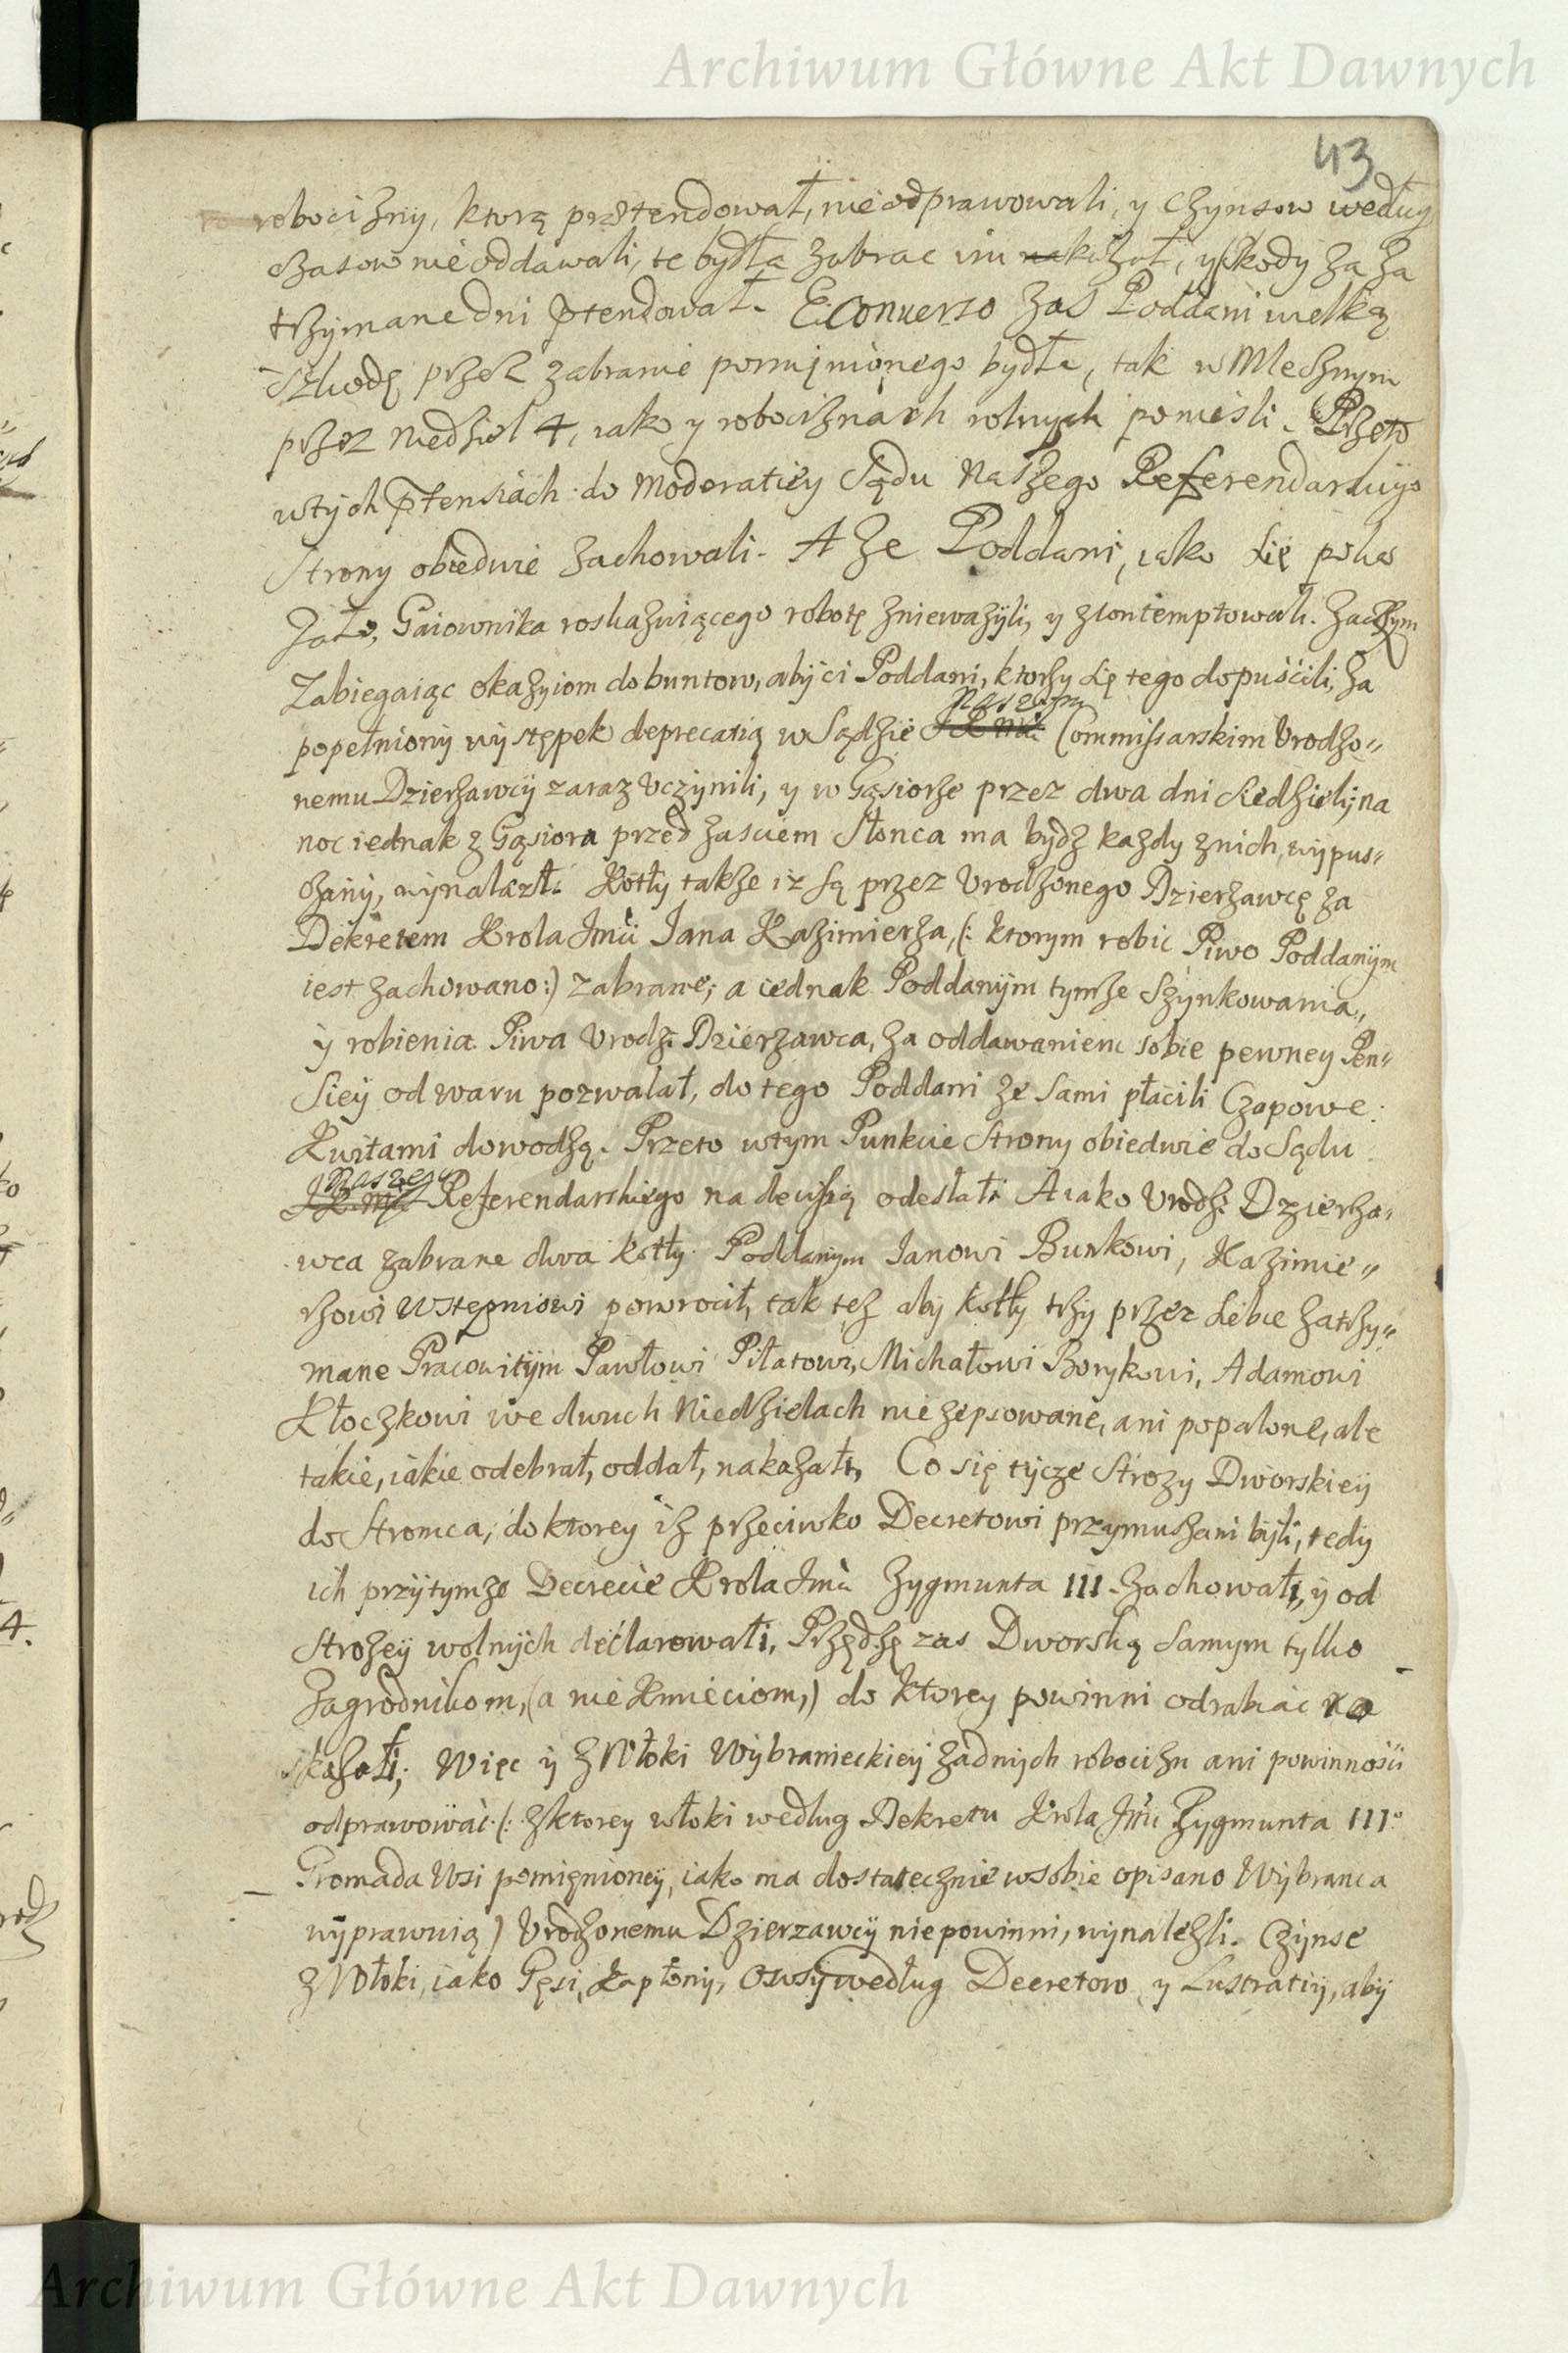 Archiwum Główne Akt Dawnych
43
robocizny, ktorą prætendował, nie odprawowali, y Czynszow według
czasow nie oddawali, te bydła zabrac im kazał, y szkody za za
trzymane dni ptendował. E converso zas Poddani welką
szkodę przez zabranie pomięnionego bydła, tak w Mlecznym
przez Niedziel 4, iako y robociznach rolnych poniesli. Przeto
wtych ptensiach do Moderatiey Sądu Naszego Referendarskiego
Strony obiedwie zachowali. A ze Poddani, iako się poka
zało, Gaiownika roskazuiącego robotę zniewazyli, y zkontemptowali. Zaczym
Zabiegaiąc okazyiom do buntow, aby ci Poddani, ktorzy się tego dopuścili, za
Naszym
popełniony występek deprecatią w Sądzie Commissarskim Urodzo„
nemu Dzierzawcy zaraz uczynili, y w Gąsiorze przez dwa dni siedzieli; na
noc iednak z Gąsiora przed zasciem Słonca ma bydz kazdy znich wypus„
czany, wynalazł. Kotły takze iz są przez Urodzonego Dzierzawcę za
Dekretem Krola Jmci Iana Kazimierza, (: ktorym robic Piwo Poddanym
iest zachowano:) zabrane; a iednak Poddanym tymze Szynkowania,,
y robienia Piwa Urodz: Dzierzawca, za oddawaniem sobie pewney Pen„
siey od waru pozwalał, do tego Poddani ze sami płacili Czopowe
Kwitami dowodzą. Przeto wtym Punkcie Strony obiedwie do Sądu
Naszego
Referendarskiego na decisią odesłali A iako Urodz: Dzierza„
wca zabrane dwa kotły Poddanym Ianowi Bunkowi, Kazimie„
rzowi Wstępniowi powrocił, tak tez aby kotły trzy przez siebie zatrzy„
mane Pracowitym Pawłowi Piłatowi, Michałowi Borykowi, Adamowi
Kłoczkowi we dwuch Niedzielach nie zepsowane, ani popalone, ale
takie, iakie odebrał, oddał, nakazał, Co się tycze Strozy Dworskiey
do Stromca, do ktorey iz przeciwko Decretowi przymuszani byli, tedy
ich przytymze Decrecie Krola Jmci Zygmunta III. Zachowali, y od
Strozey wolnych declarowali, Przędzę zas Dworską samym tylko
Zagrodnikom, (a nie Kmieciom,) do ktorey powinni odrabiac na
kazali; Więc y z Włoki Wybranieckiey zadnych robocizn ani powinności
odprawowac (: zktorey włoki według Dekretu Krola Jmci Zygmunta III°
Gromada Wsi pomięnioney, iako ma dostatecznie wsobie opisano Wybranca
wyprawuią) Urodzonemu Dzierzawcy nie powinni, wynalezli. Czynsz
z Włoki, iako Gęsi, Kapłony, Owsy według Decretow y Lustratiy, aby
Archiwum Główne Akt Dawnych